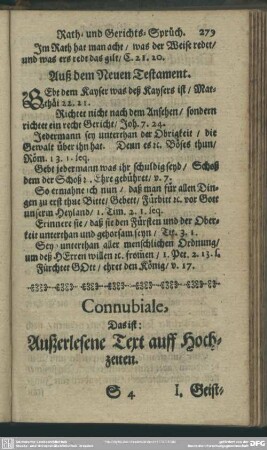 Rath- und Gerichts-Sprüch. 279
Im Rath hat man acht / was der Weise redet/
und was ers redt das gilt/ C. 21. 20.
Auß dem Neuen Testament.
GEbt dem Kayser was deß Kaysers ist / Mat-
thäi 22. 21.
Richtet nicht nach dem Ansehen / sondern
richtet ein recht Gericht/ Joh. 7. 24.
Jedermann sey unterthan der Obrigkeit / die
Gewalt über ihn hat. Denn es ꝛc. Böses thun/
Röm. 13. 1. seq.
Gebt jedermann was ihr schuldig seyd / Schoß
dem der Schoß ꝛ. Ehre gebühret / v. 7.
So ermahne ich nun / daß man für allen Din-
gen zu erst thue Bitte/ Gebett/ Fürbitt ꝛc. vor Gott
unserm Heyland/ 1. Tim. 2. 1. seq.
Erinnere sie / daß sie den Fürsten und der Ober-
keit unterthan und gehorsam seyn / Tit. 3. 1.
Sey unterthan aller menschlichen Ordnung/
um deß HErren willen ꝛc. fromen / 1. Pet. 2. 13. s.
Fürchtet GOtt / ehret den König/ v. 17.
Connubiale,
Das ist:
Außerlesene Text auff Hoch-
zeiten.
S 4 I. Geist-